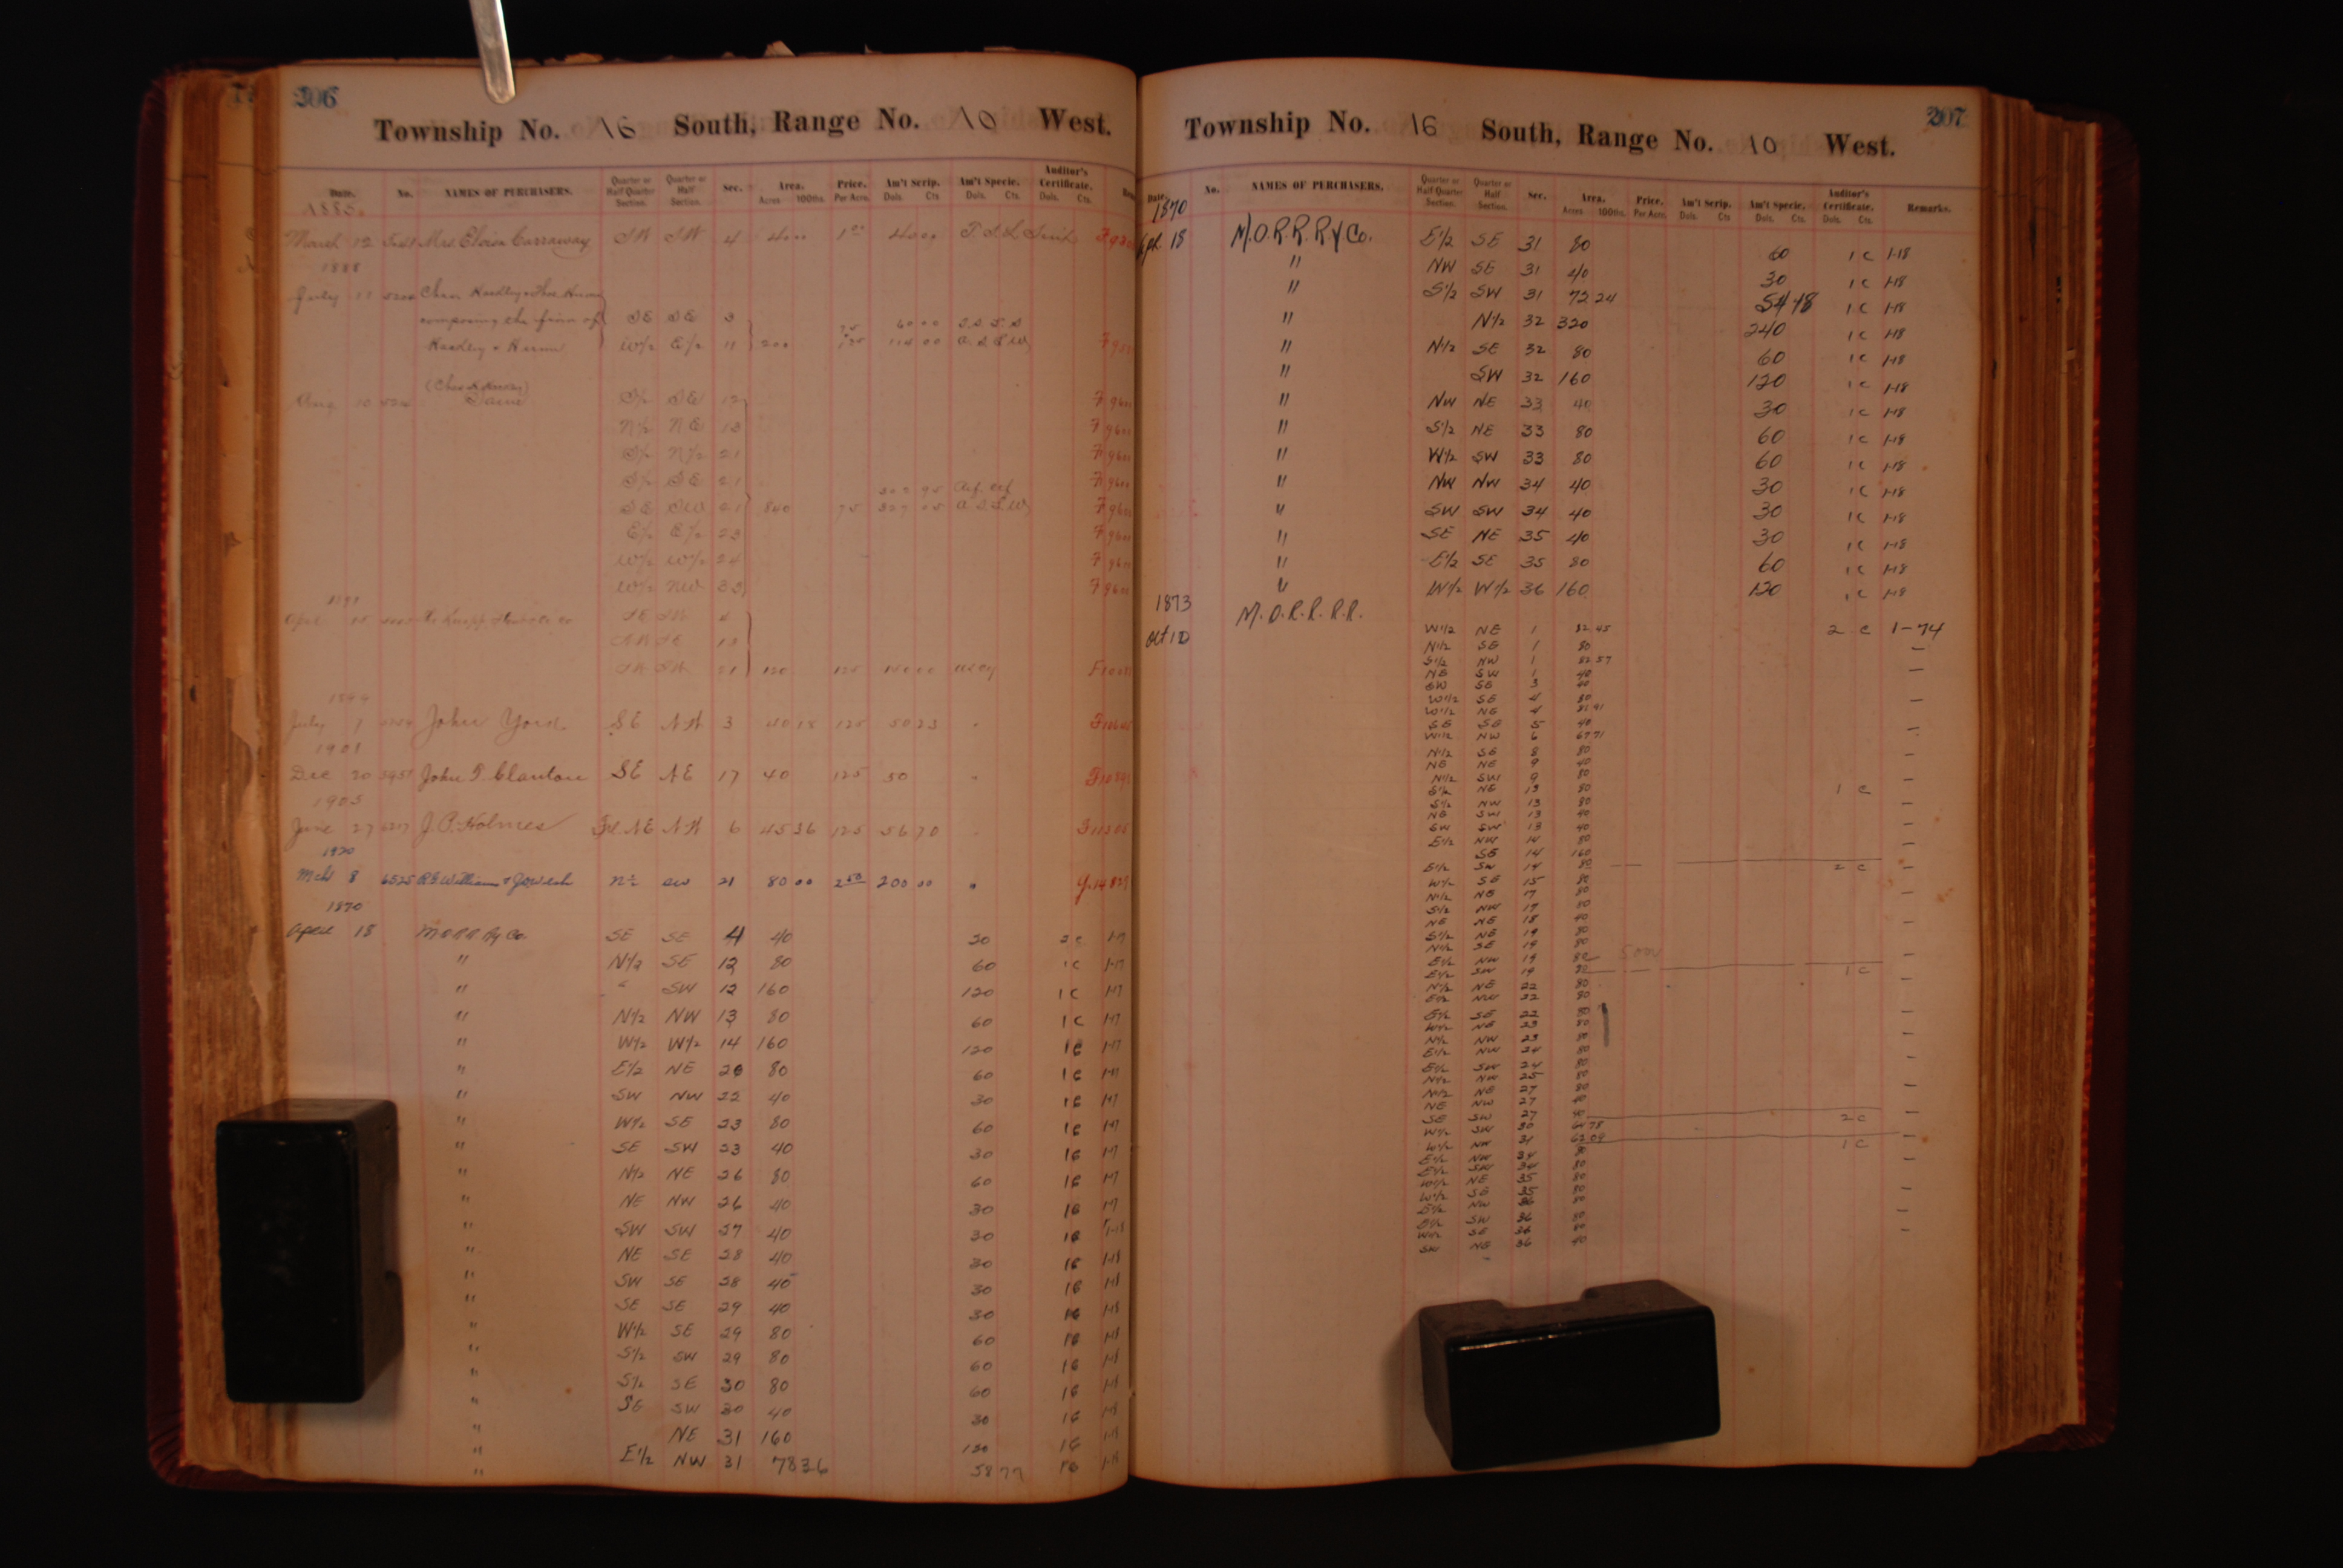 206
Township No. 16 South, Range No. 10 West.
Date. No. NAMES OF PURCHASERS. Quarter or Half Quarter Section. Quarter or Half Section. Sec. Area. Acres 100ths. Price. Per Acre. Am't Scrip. Dols. Cts Am't Specie. Dols. Cts. Auditor's Certificate. Dols. Cts.
1885
March 12 Mrs. Eloisa Carraway SW SW 4 40 00 1 00 40 00
1888
July
composing the firm of SE SE 3 75 60 00
W/2 E/2 11 200 114 00
Aug 10 Same S/2 SE 12
N/2 NE 13
S/2 N/2 21
S/2 SE 21
SE SW 21 840 75 327 05
E/2 E/2 23
W/2 W/2 24
W/2 NW 33
April 15 SE SW 4
SW SE
SW SW 21 120 125 150 00
July 1 John SE NW 3 40 18 125 50 23
Dec 20 John T. Clanton SE NE 17 40 125 50
1905
June 27 J. P. Holmes Frl. NE NW 6 45 36 125 56 70
1920
Mch 8 6525 N½ SW 21 80 00 2 50 200 00
1870
April 18 M O R R Ry Co. SE SE 4 40 30 2 c 1-17
" N½ SE 12 80 60 1 c 1-17
" " SW 12 160 120 1 C 1-17
" N½ NW 13 80 60 1 C 1-17
" W½ W½ 14 160 120 1 C 1-17
" E½ NE 20 80 60 1 C 1-17
" SW NW 22 40 30 1 C 1-17
" W½ SE 23 80 60 1 C 1-17
" SE SW 23 40 30 1 C 1-17
" N½ NE 26 80 60 1 C 1-17
" NE NW 26 40 30 1 C 1-17
" SW SW 27 40 30 1 C 1-18
" NE SE 28 40 30 1 C 1-18
" SW SE 28 40 30 1 C 1-18
" SE SE 29 40 30 1 C 1-18
" W½ SE 29 80 60 1 C 1-18
" S½ SW 29 80 60 1 C 1-18
" S½ SE 30 80 60 1 C 1-18
" SE SW 30 40 30 1 C 1-18
" NE 31 160 120 1 C 1-18
" E½ NW 31 78 36 58 77 1 C 1-18
207
Township No. 16 South, Range No. 10 West.
Date. No. NAMES OF PURCHASERS. Quarter or Half Quarter Section. Quarter or Half Section. Sec. Area. Acres 100ths. Price. Per Acre. Am't Scrip. Dols. Cts Am't Specie. Dols. Cts. Auditor's Certificate. Dols. Cts. Remarks.
1870
Apl. 18 M.O.R.R. Ry Co. E½ SE 31 80 60 1 C 1-18
" NW SE 31 40 30 1 C 1-18
" S½ SW 31 72 24 54 18 1 C 1-18
" N½ 32 320 240 1 C 1-18
" N½ SE 32 80 60 1 C 1-18
" SW 32 160 120 1 C 1-18
" NW NE 33 40 30 1 C 1-18
" S½ NE 33 80 60 1 C 1-18
" W½ SW 33 80 60 1 C 1-18
" NW NW 34 40 30 1 C 1-18
" SW SW 34 40 30 1 C 1-18
" SE NE 35 40 30 1 C 1-18
" E½ SE 35 80 60 1 C 1-18
" W½ W½ 36 160 120 1 C 1-18
1873 M.O.R.R.R.R.
Oct 10 W½ NE 1 82 45 2 C 1-74
N½ SE 1 80 —
S½ NW 1 82 57
NE SW 1 40
SW SE 3 40
W½ SE 4 80
W½ NE 4
SE SE 5 40
W½ NW 6 67 71
N½ SE 8 80
NE NE 9 40
N½ SW 9 80
S½ NE 13 80 1 C
S½ NW 13 80
NE SW 13 40
SW SW 13 40
E½ NW 14 80
SE 14 160
E½ SW 14 80 2 C
W½ SE 15 80
N½ NE 17 80
S½ NW 17 80
NE NE 18 40
S½ NE 19 80
N½ SE 19 80
E½ NW 19 80
E½ SW 19 80 1 C
N½ NE 22 80
E½ NW 22 80
E½ SE 22 80
W½ NE 23 80
N½ NW 23 80
E½ NW 24 80
E½ SW 24 80
N½ NW 25 80
N½ NE 27 80
NE NW 27 40
SE SW 27 40 2 C
W½ SW 30 64 78
W½ NW 31 62 09 1 C
E½ NW 34 80
E½ SW 34 80
W½ NE 35 80
W½ SE 35 80
E½ NW 36 80
E½ SW 36 80
W½ SE 36 80
SW NE 36 40